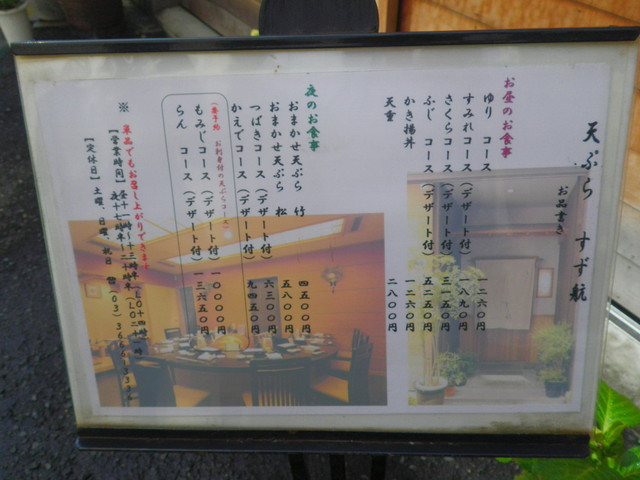 天ぷら すず航
お品書き
お昼のお食事
ゆり コース 一二六〇円
すみれコース 一八九〇円
さくらコース（デザート付） 三一五〇円
ふじ コース（デザート付） 五二五〇円
かき揚丼 一二六〇円
天重 二八〇〇円
夜のお食事
おまかせ天ぷら 竹 四五〇〇円
おまかせ天ぷら 松 五八〇〇円
つばきコース（デザート付） 六三〇〇円
かえでコース（デザート付） 九四五〇円
（要予約 お刺身付の天ぷらコース）
もみじコース（デザート付） 一〇〇〇〇円
らん コース（デザート付） 一三六五〇円
※ 単品でもお召し上がりできます
【営業時間】
【定休日】土曜、日曜、祝日 ☎（03）